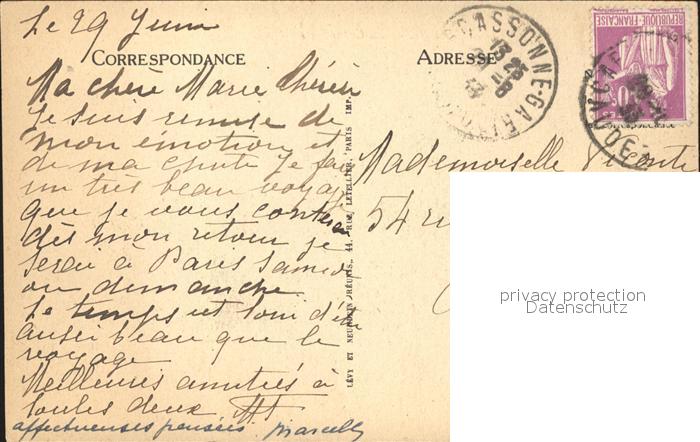 Le 29 Juin
CORRESPONDANCE
ADRESSE
Ma chère Marie Chérie
Je suis remise de
mon émotion et
de ma chute je fais
un très beau voyage
que je vous conterai
dès mon retour je
serai à Paris Samedi
ou dimanche
Le temps est loin d'être
aussi beau que le
voyage
Meilleures amitiés à
toutes deux
affectueuses pensées Marcelle
LÉVY ET NEURDEIN RÉUNIS, 44, RUE LETELLIER, PARIS IMP.
CARCASSONNE-GARE
15 25
REPUBLIQUE FRANÇAISE
Mademoiselle
54 ru
privacy protection
Datenschutz